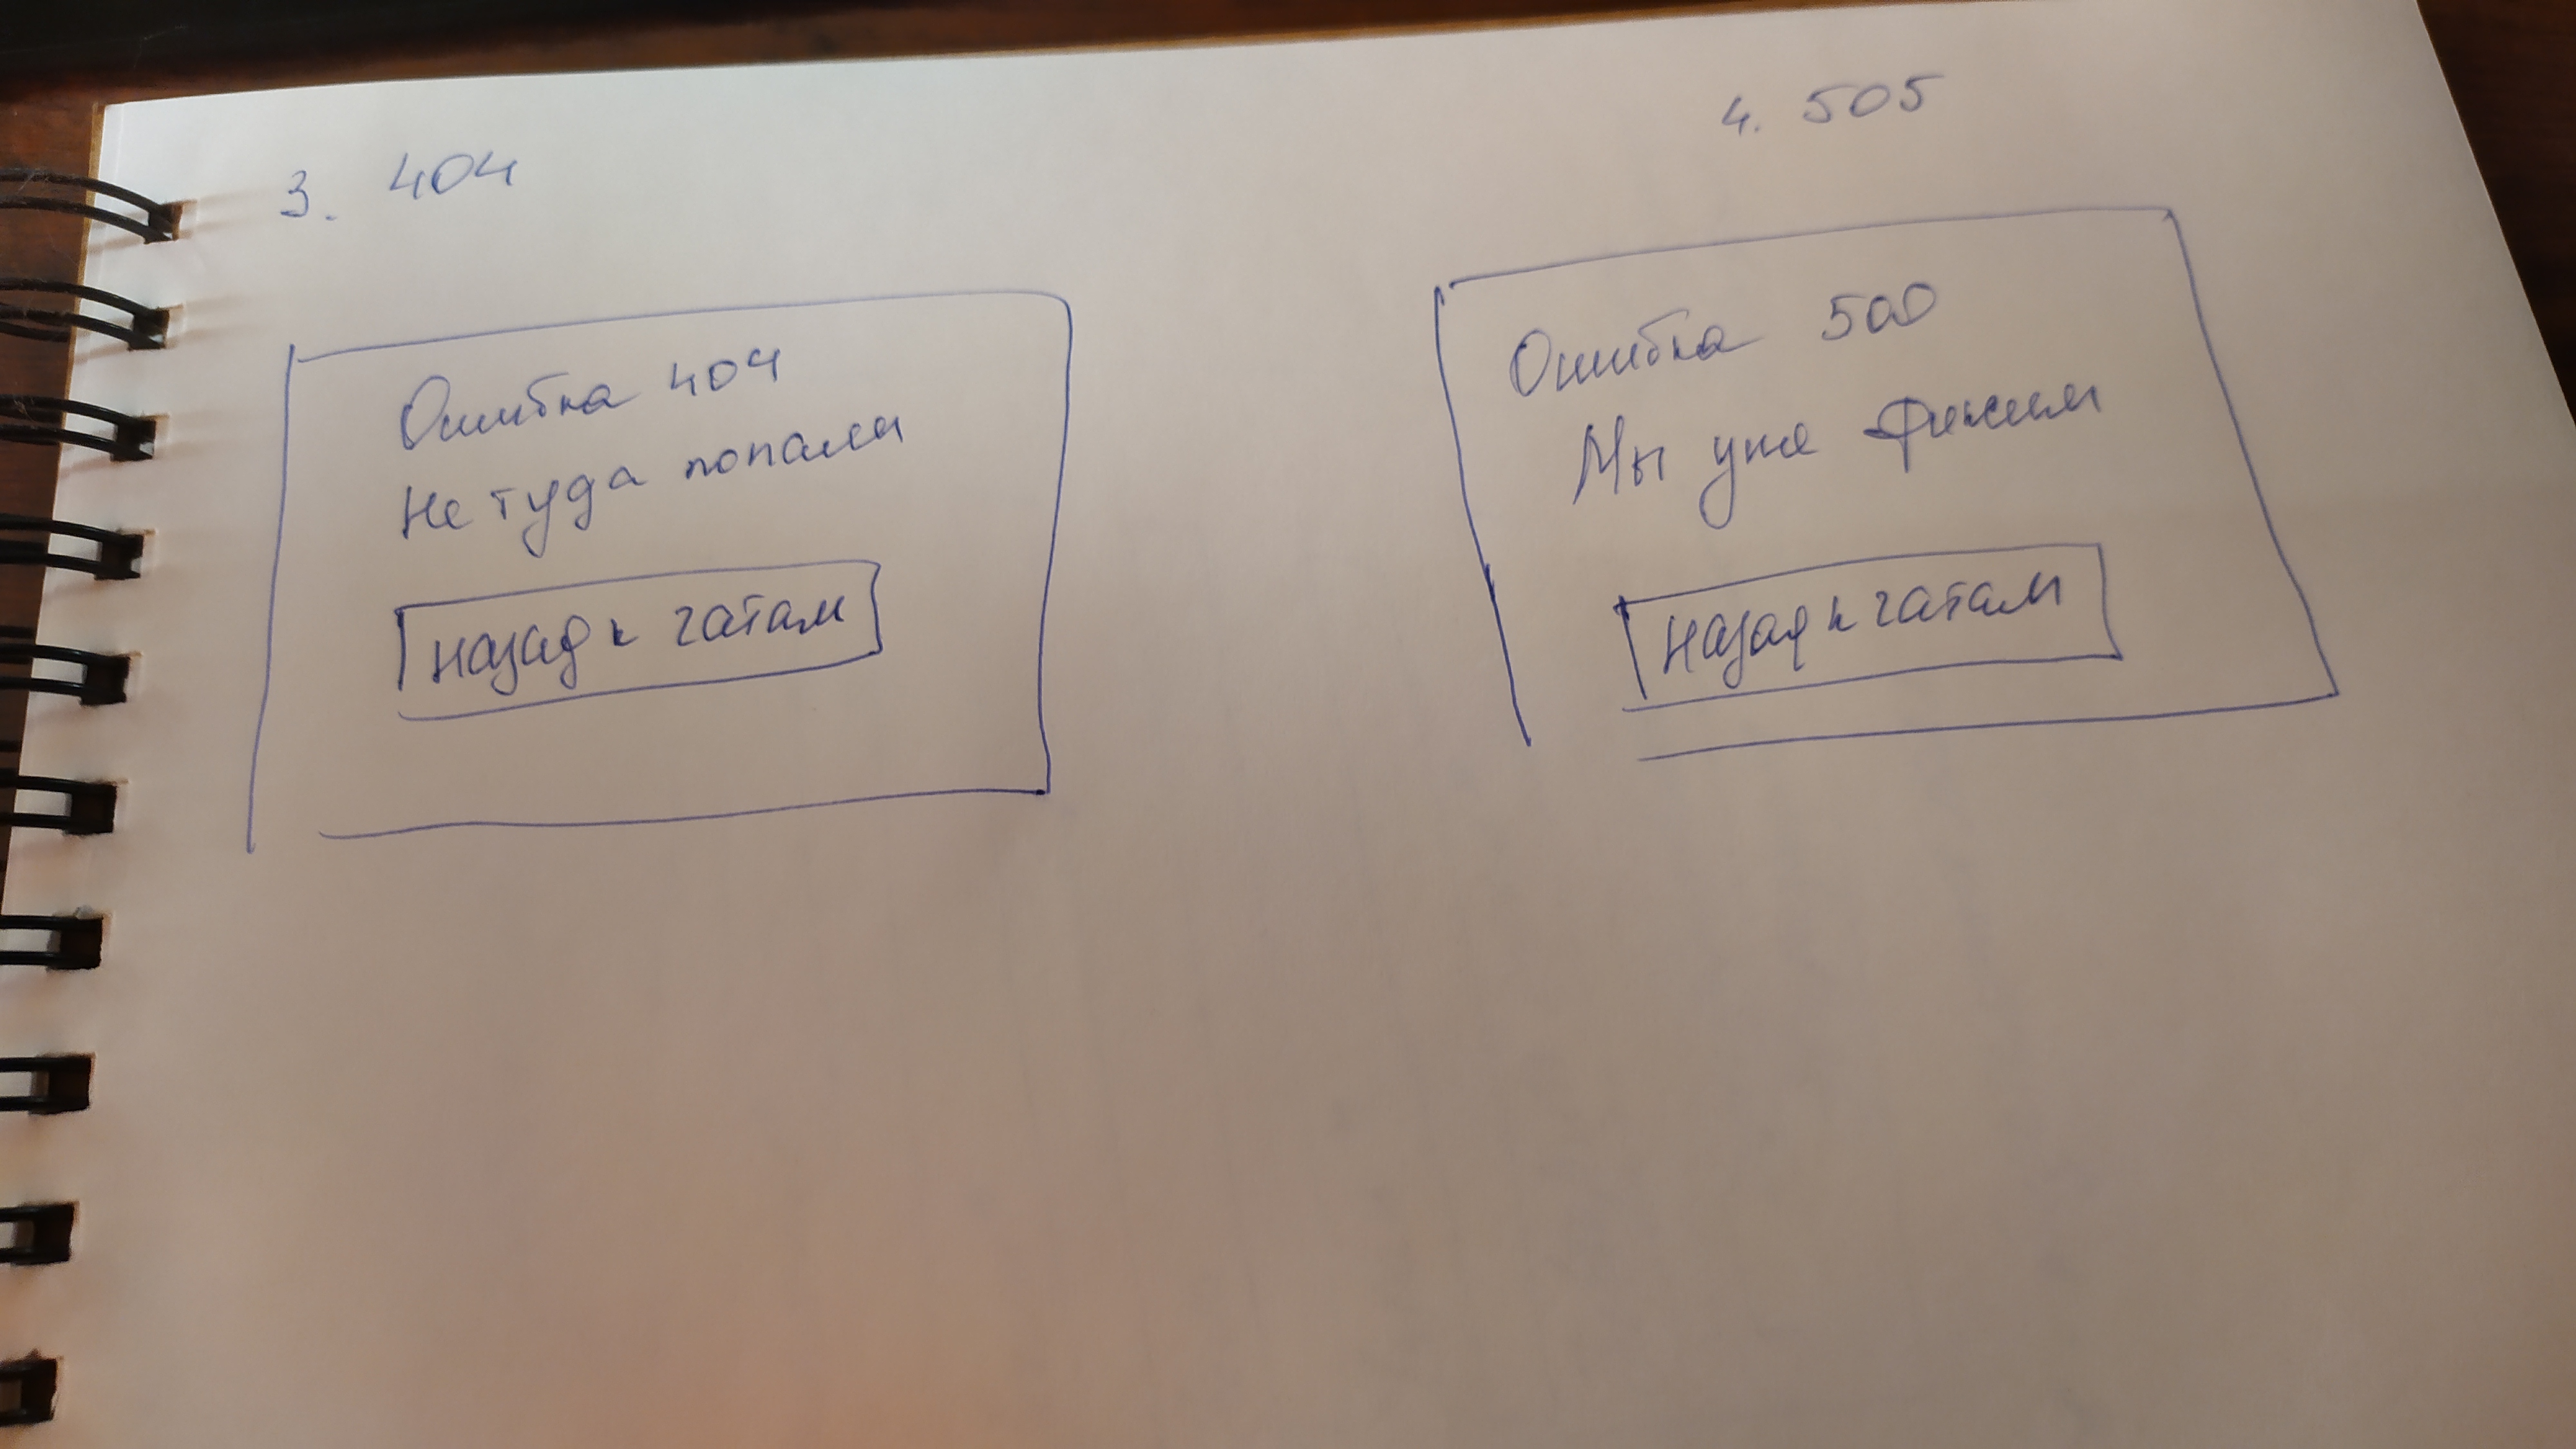 3. 404
Ошибка 404
Не туда попали
Назад к чатам
4. 505
Ошибка 500
Мы уже фиксим
Назад к чатам